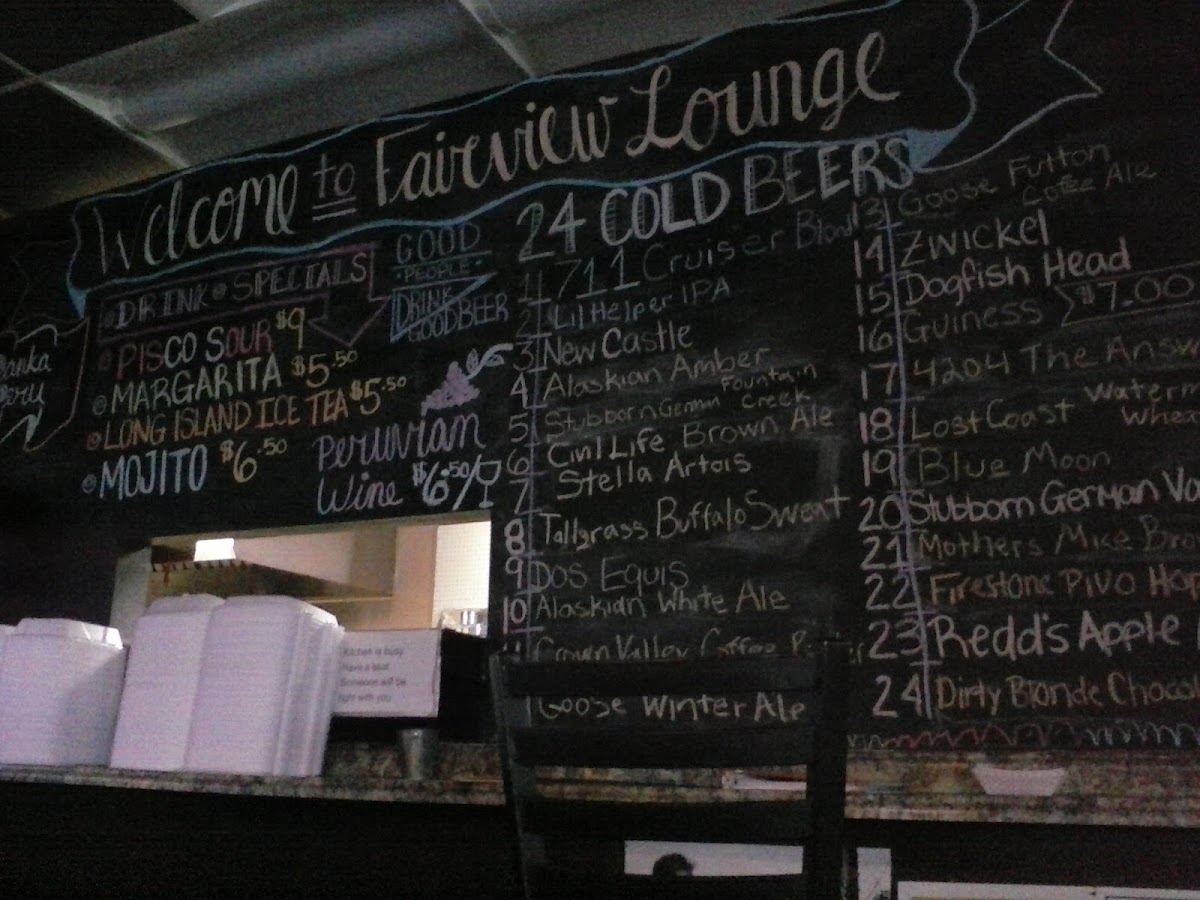 Welcome to Faireview Lounge
DRINK SPECIALS
PISCO SOUR $9
MARGARITA $5.50
LONG ISLAND ICE TEA $5.50
MOJITO $6.50
GOOD
PEOPLE
DRINK
GOOD BEER
Peruvian
Wine $6.50/
24 COLD BEERS
1 711 Cruiser
2 Lil Helper IPA
3 New Castle
4 Alaskian Amber
5 Stubborn German Fountain
Creek
6 Civil Life Brown Ale
7 Stella Artois
8 Tallgrass Buffalo Sweat
9 Dos Equis
10 Alaskian White Ale
Crown Valley Coffee
Goose Winter Ale
13 Goose Fulton
Coffee Ale
14 Zwickel
15 Dogfish Head
16 Guiness $7.00
17 4204 The
18 Lost Coast
19 Blue Moon
20 Stubborn German
21 Mothers Mike
22 Firestone Pivo
23 Redd's Apple
24 Dirty Blonde
Kitchen is busy
Have a seat
Someone will be
right with you